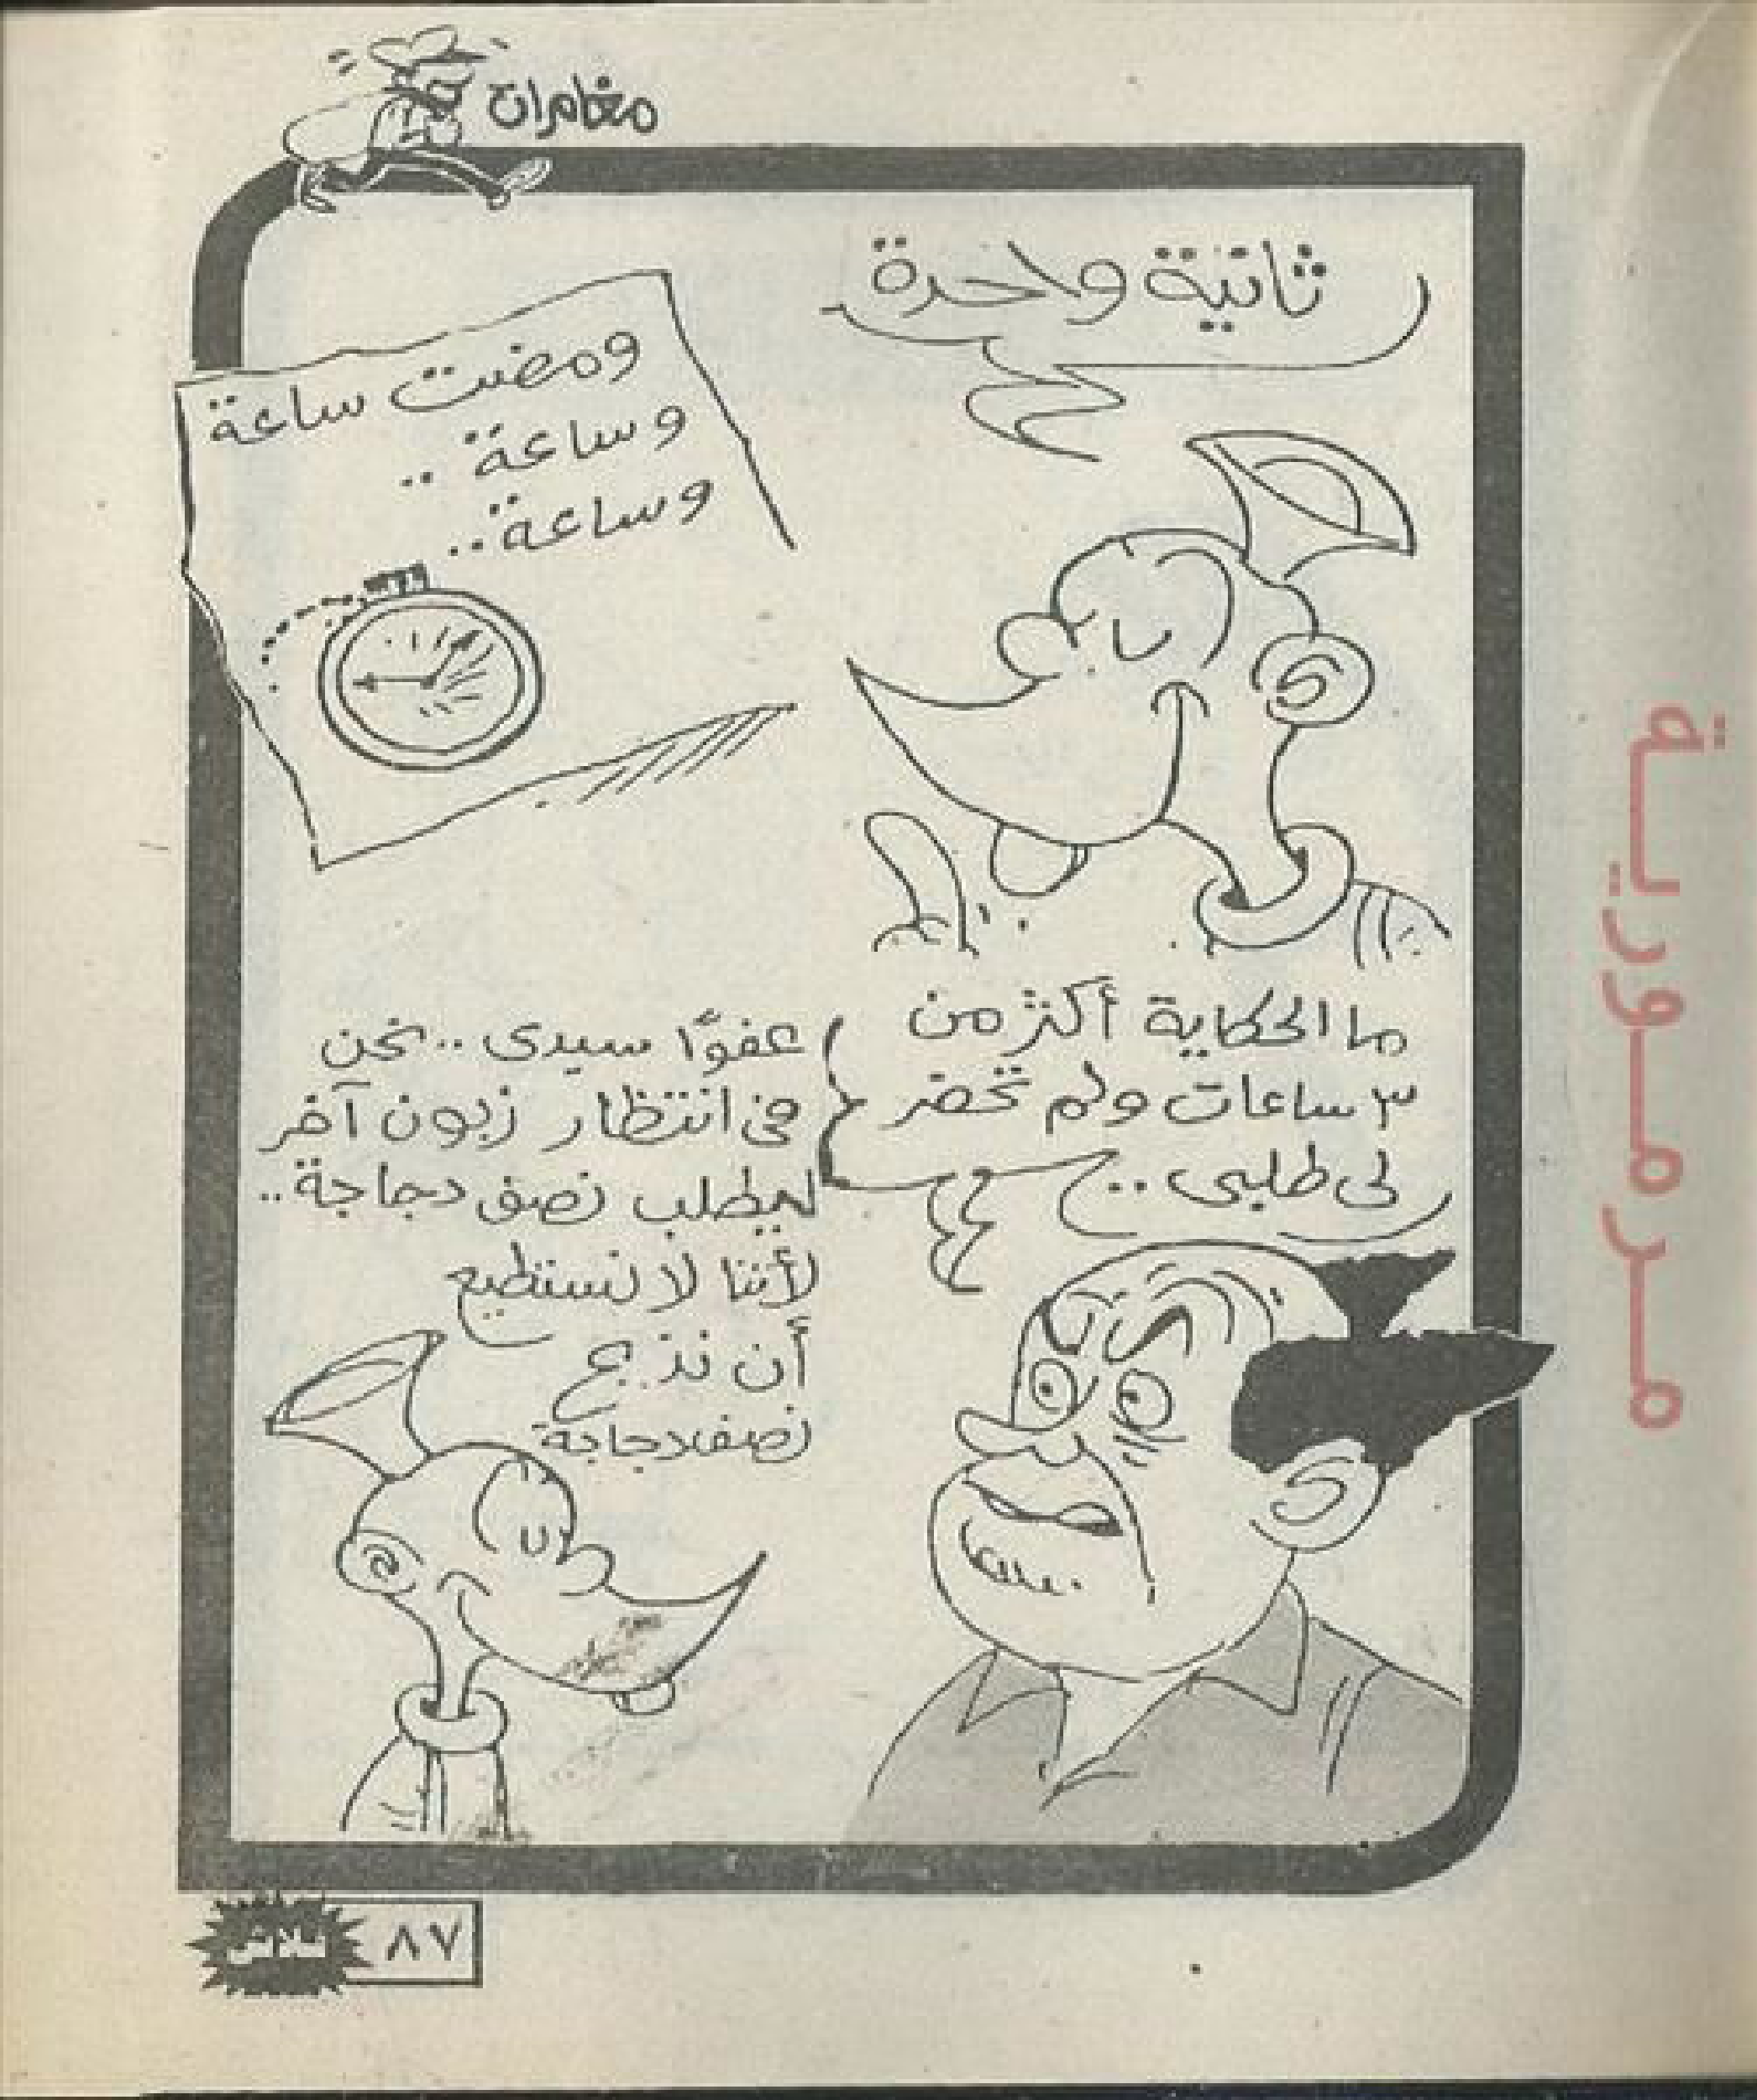 مغامرات
ثانية واحدة
ومضت ساعة
وساعة ..
وساعة ..
ما الحكاية أكثر من
٣ ساعات ولم تحضر
لى طلبى ..
عفوًا سيدى .. نحن
فى انتظار زبون آخر
ليطلب نصف دجاجة ..
لأننا لا نستطيع
أن نذبح
نصف دجاجة
مرمورية
فلاش
٨٧